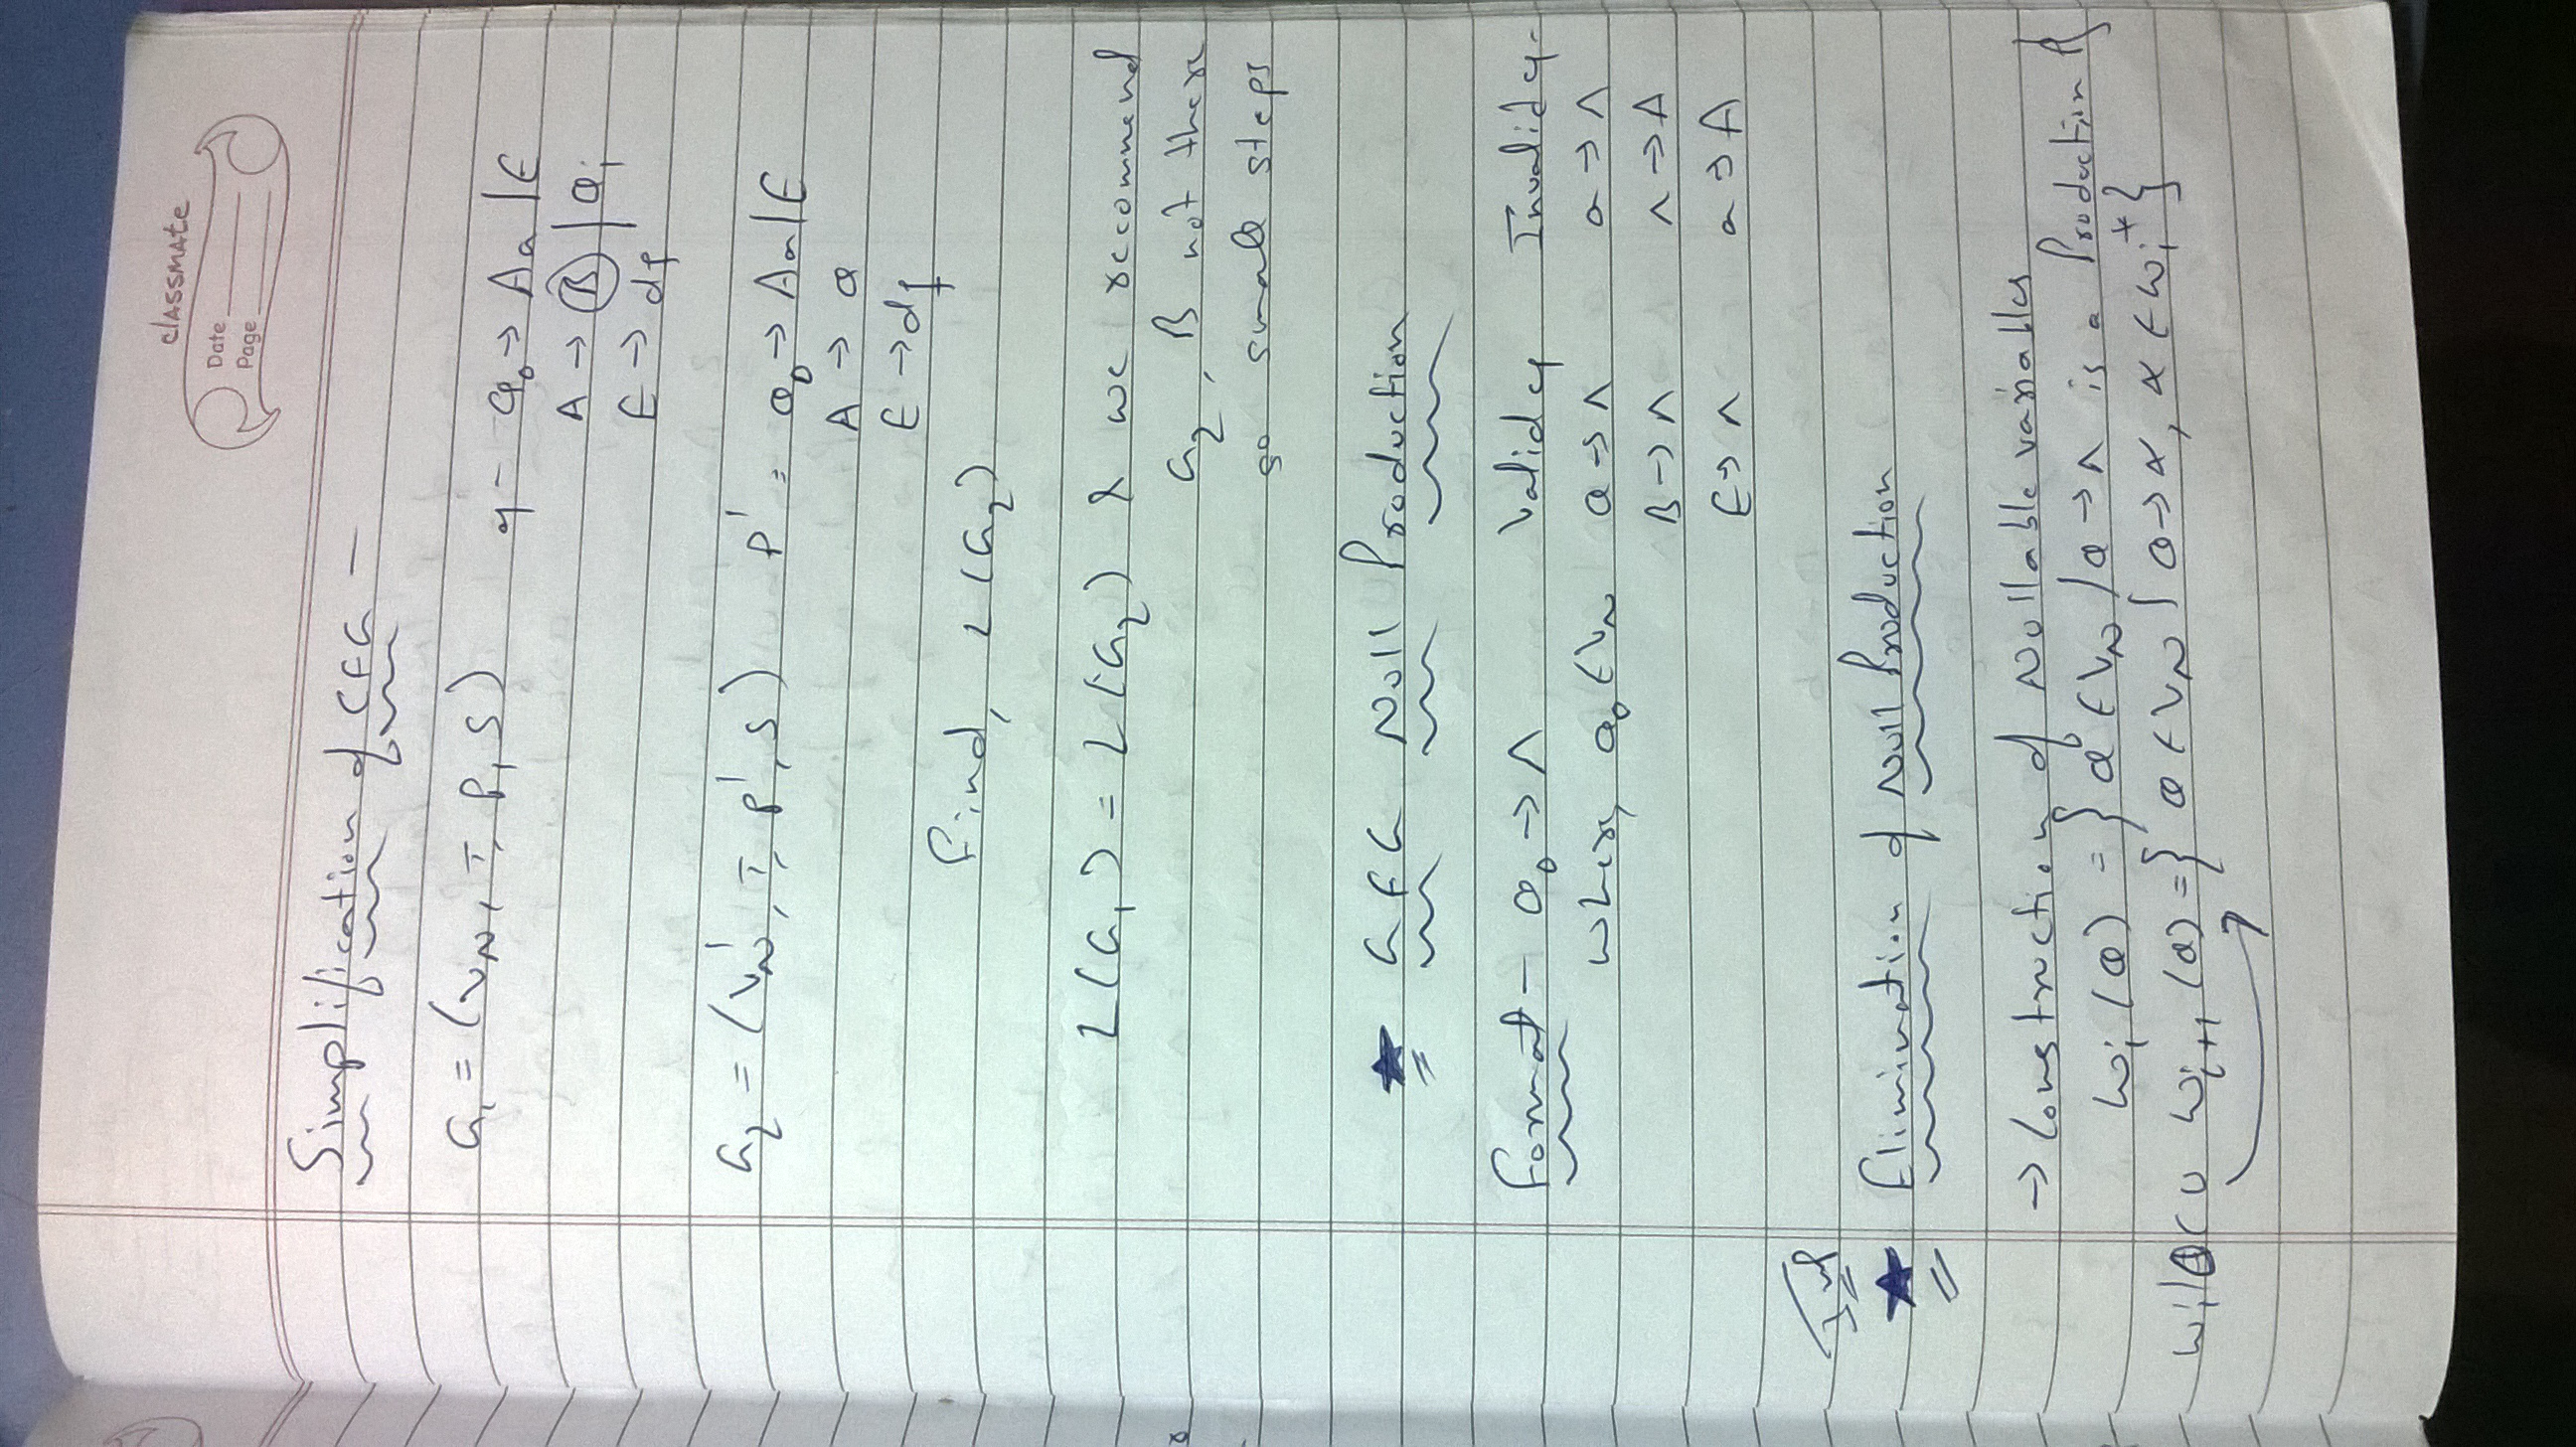 classmate
Date
Page
Simplification of CFG —
G₁ = (V_N, T, P, S) eg - Q₀ → Aa | E
A → B | Q₁
E → df
G₂ = (V_N', T, P', S) P' = Q₀ → Aa | E
A → Q
E → df
Find, L(G₂)
L(G₁) = L(G₂) & we recommend
G₂, B not there
so small steps
★ CFG Null Production
Format — Q₀ → Λ Valid eg Invalid eg -
where, Q₀ ∈ V_N Q → Λ a → Λ
B → Λ Λ → A
E → Λ a → A
Imp
★ Elimination of Null Production
→ Construction of Nullable variables
Wᵢ(Q) = { Q ∈ V_N / Q → Λ is a Production }
∪ Wᵢ₊₁(Q) = { Q ∈ V_N | Q → α, α ∈ Wᵢ* }